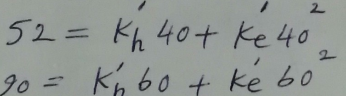 52 = K'h 40 + K'e 40²
90 = K'h 60 + K'e 60²